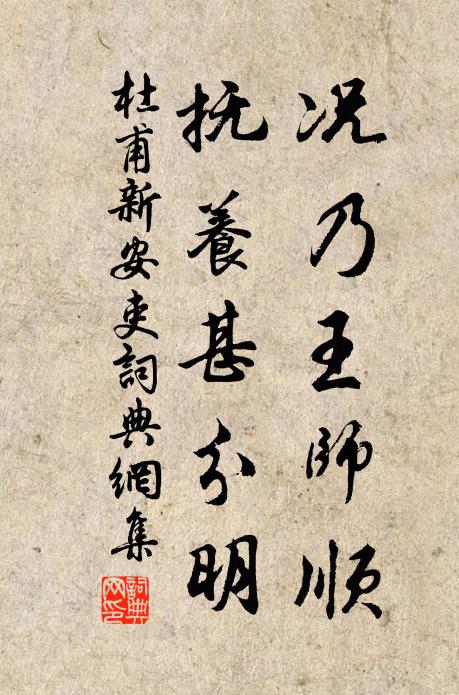 况乃王師順
抚養甚分明
杜甫新安吏詞典網集
詞典
网印